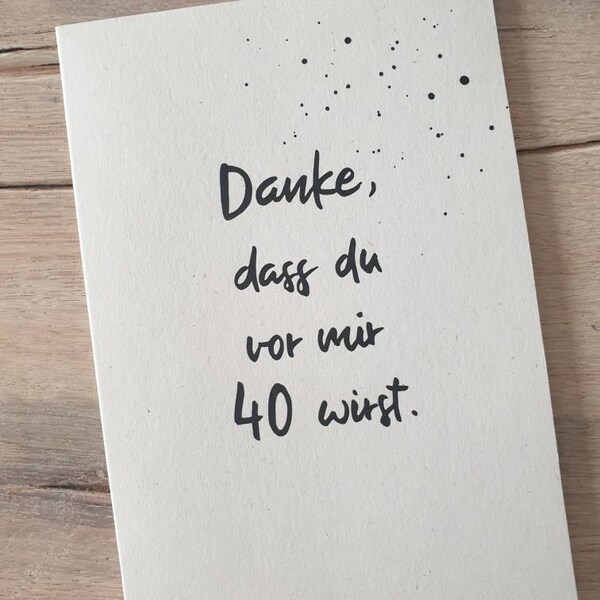 Danke,
dass du
vor mir
40 wirst.